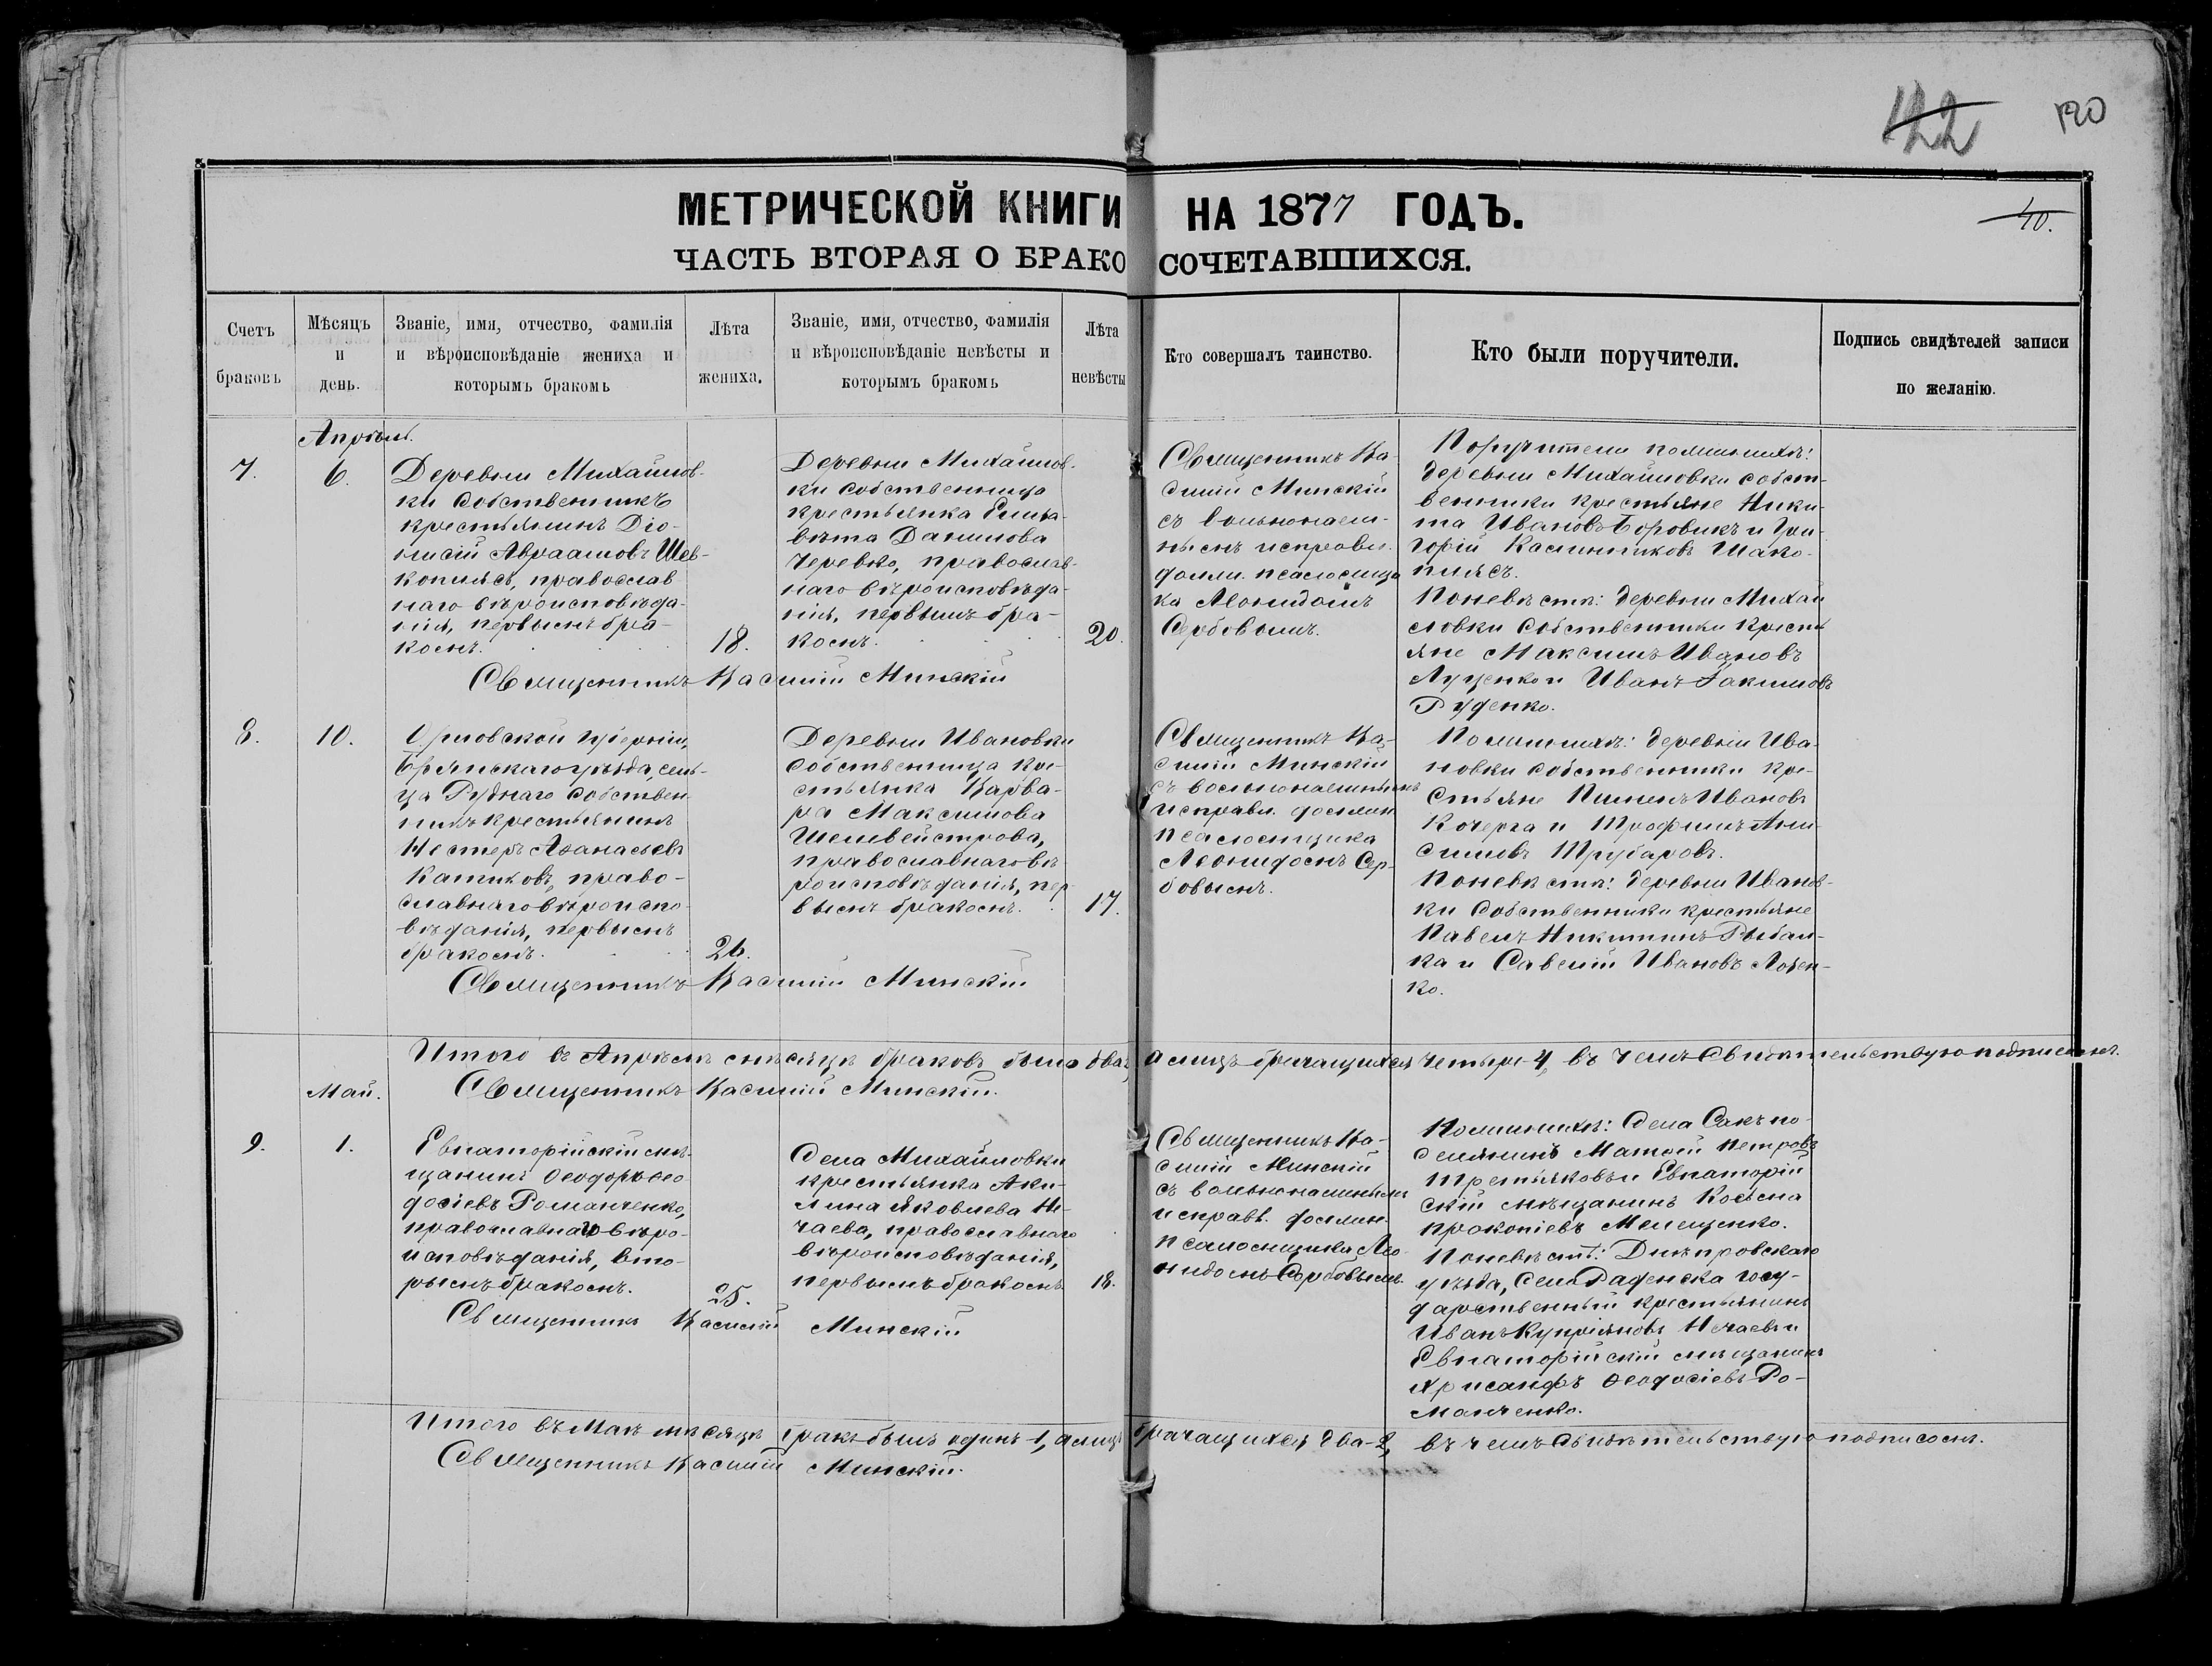 122 120
МЕТРИЧЕСКОЙ КНИГИ НА 1877 ГОДЪ.
40.
ЧАСТЬ ВТОРАЯ О БРАКОСОЧЕТАВШИХСЯ.
Счетъ браковъ
Мѣсяцъ и день.
Званіе, имя, отчество, фамилія
и вѣроисповѣданіе жениха и
которымъ бракомъ
Лѣта жениха.
Званіе, имя, отчество, фамилія
и вѣроисповѣданіе невѣсты и
которымъ бракомъ
Лѣта невѣсты
Кто совершалъ таинство.
Кто были поручители.
Подпись свидѣтелей записи
по желанію.
Апрѣль.
7.
6.
Деревни Михайлов-
ки собственникъ
крестьянинъ Діо-
нисій Авраамовъ Шев-
коплясъ, православ
наго вѣроисповѣда-
нія, первымъ бра-
комъ.
18.
Деревни Михайлов-
ки собственница
крестьянка Елиса-
вѣта Данилова
Черевко, православ-
наго вѣроисповѣда-
нія, первымъ бра-
комъ.
20.
Священникъ Ва-
силій Минскій
съ вольнонаем-
нымъ исправл.
должн. псаломщи
ка Леонидомъ
Сербовымъ.
Поручители по женихѣ:
деревни Михайловки собст-
венники крестьяне Ники-
та Ивановъ Боровикъ и Гри-
горій Калинниковъ Шако-
плясъ.
По невѣстѣ: деревни Михай
ловки собственники кресть
яне Максимъ Ивановъ
Луценко и Иванъ Іакимовъ
Руденко.
Священникъ Василій Минскій
8.
10.
Орловской губерніи,
Брянскаго уѣзда, сель-
ца Руднаго собствен-
никъ крестьянинъ
Нестеръ Аѳанасьевъ
Катиковъ, право-
славнаго вѣроиспо-
вѣданія, первымъ
бракомъ.
26.
Деревни Ивановки
собственница кре-
стьянка Варва-
ра Максимова
Шелвейстрова,
православнаго вѣ-
роисповѣданія, пер-
вымъ бракомъ.
17.
Священникъ Ва-
силій Минскій
съ вольнонаемнымъ
исправл. должн.
псаломщика
Леонидомъ Сер-
бовымъ.
По женихѣ: деревни Ива-
новки собственники кре-
стьяне Пименъ Ивановъ
Кочерга и Трофимъ Ани-
симовъ Трубаровъ.
По невѣстѣ: деревни Иванов-
ки собственники крестьяне
Павелъ Никитинъ Рыбал-
ка и Савелій Ивановъ Лозен-
ко.
Священникъ Василій Минскій
Итого въ Апрѣлѣ мѣсяцѣ браковъ было два, а лицъ брачащихся четыре 4, въ чемъ свидѣтельствую подписомъ.
Священникъ Василій Минскій.
Май.
9.
1.
Евпаторійскій мѣ-
щанинъ Ѳеодоръ Ѳео
досіевъ Романченко,
православнаго вѣро-
исповѣданія, вто-
рымъ бракомъ.
25.
Села Михайловки
крестьянка Аки-
лина Яковлева Не-
чаева, православнаго
вѣроисповѣданія,
первымъ бракомъ
18.
Священникъ Ва-
силій Минскій
съ вольнонаемнымъ
исправл. должн.
псаломщика Лео-
нидомъ Сербовымъ.
По женихѣ: Села Сакъ по-
селянинъ Матѳей Петровъ
Третьяковъ и Евпаторій
скій мѣщанинъ Косьма
Прокопіевъ Мелещенко.
По невѣстѣ: Днѣпровскаго
уѣзда, села Раденска госу-
дарственный крестьянинъ
Иванъ Купріяновъ Нечаевъ и
Евпаторійскій мѣщанинъ
Хрисанфъ Ѳеодосіевъ Ро-
манченко.
Священникъ Василій Минскій
Итого въ Маѣ мѣсяцѣ бракъ былъ одинъ 1, а лицъ брачащихся два-2, въ чемъ свидѣтельствую подписомъ.
Священникъ Василій Минскій.